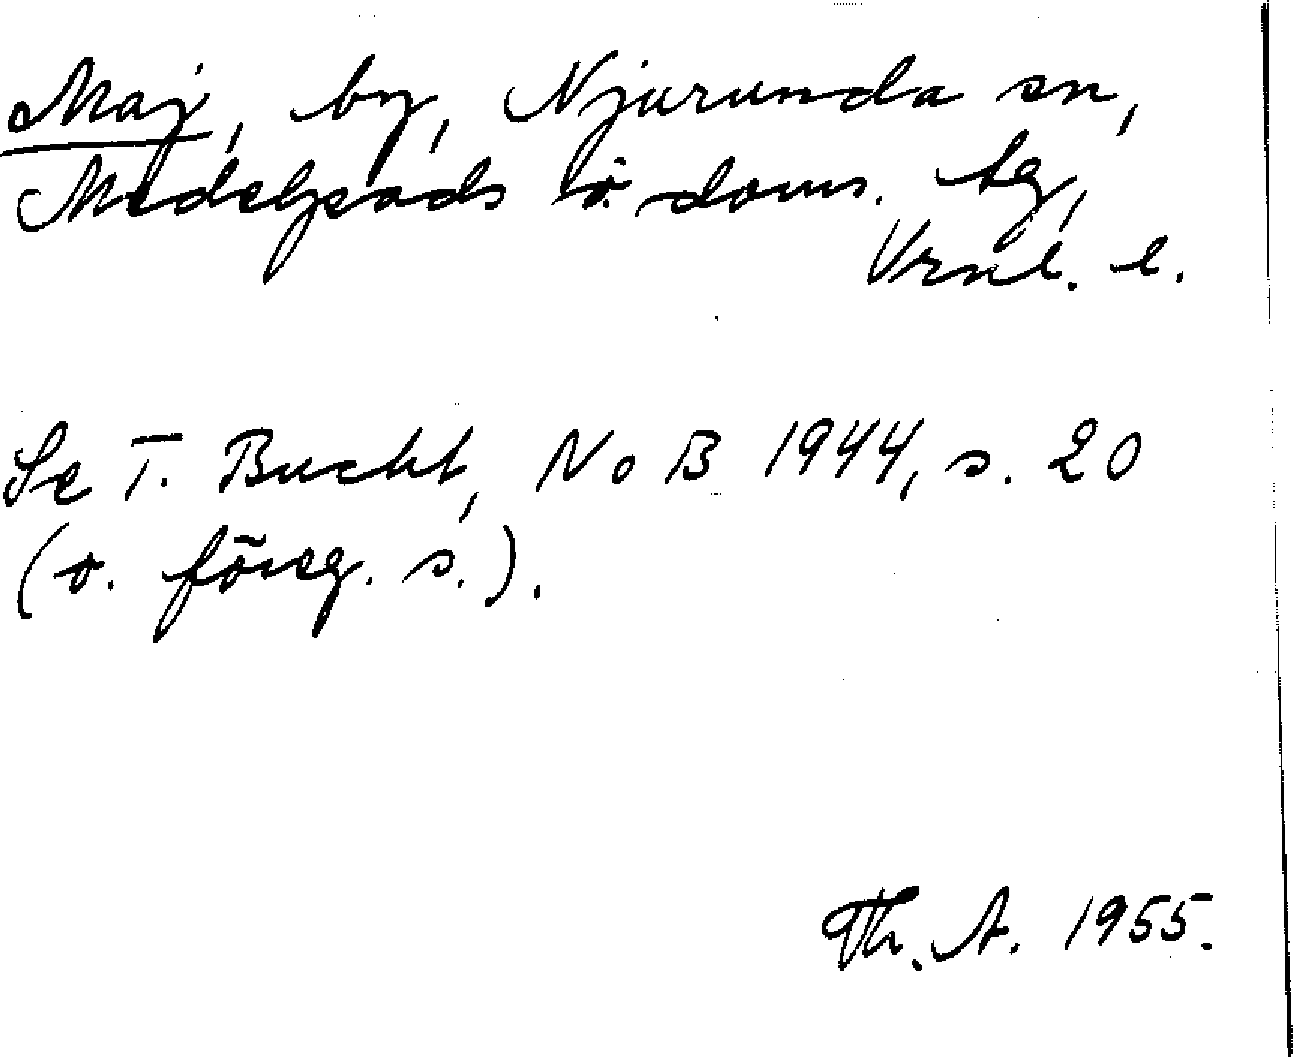 Maj, by, Njurunda sn,
Medelpads ö. doms. tg,
Vrnl. l.
Se T. Bucht, NoB 1944, s. 20
(o. föreg. s.).
Th. A. 1955.